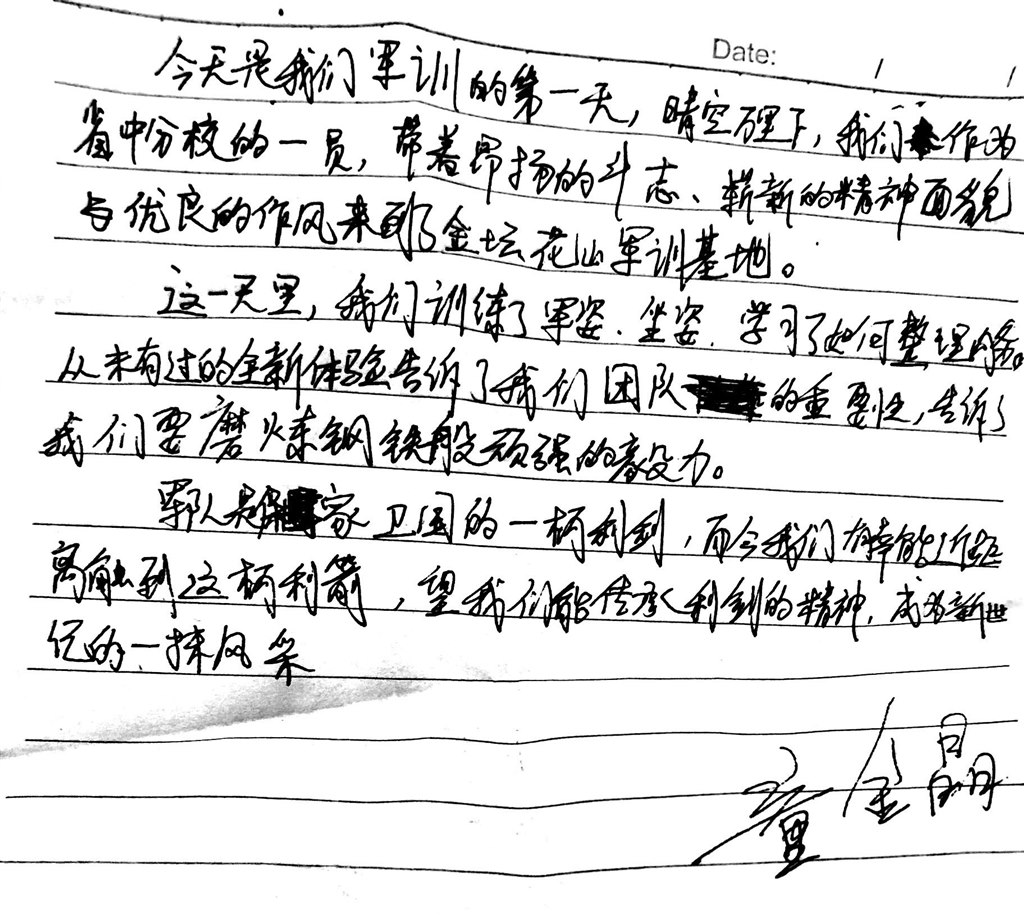 Date: / /
今天是我们军训的第一天，晴空万里下，我们作为
省中分校的一员，带着昂扬的斗志、崭新的精神面貌
与优良的作风来到了金坛花山军训基地。
这一天里，我们训练了军姿、坐姿，学习了如何整理内务。
从未有过的全新体验告诉了我们团队的重要性，告诉了
我们要磨炼钢铁般顽强的毅力。
军队是保家卫国的一柄利剑，而今我们有幸能近距
离触到这柄利箭，望我们能传承利剑的精神，成为新世
纪的一抹风采
童金晶